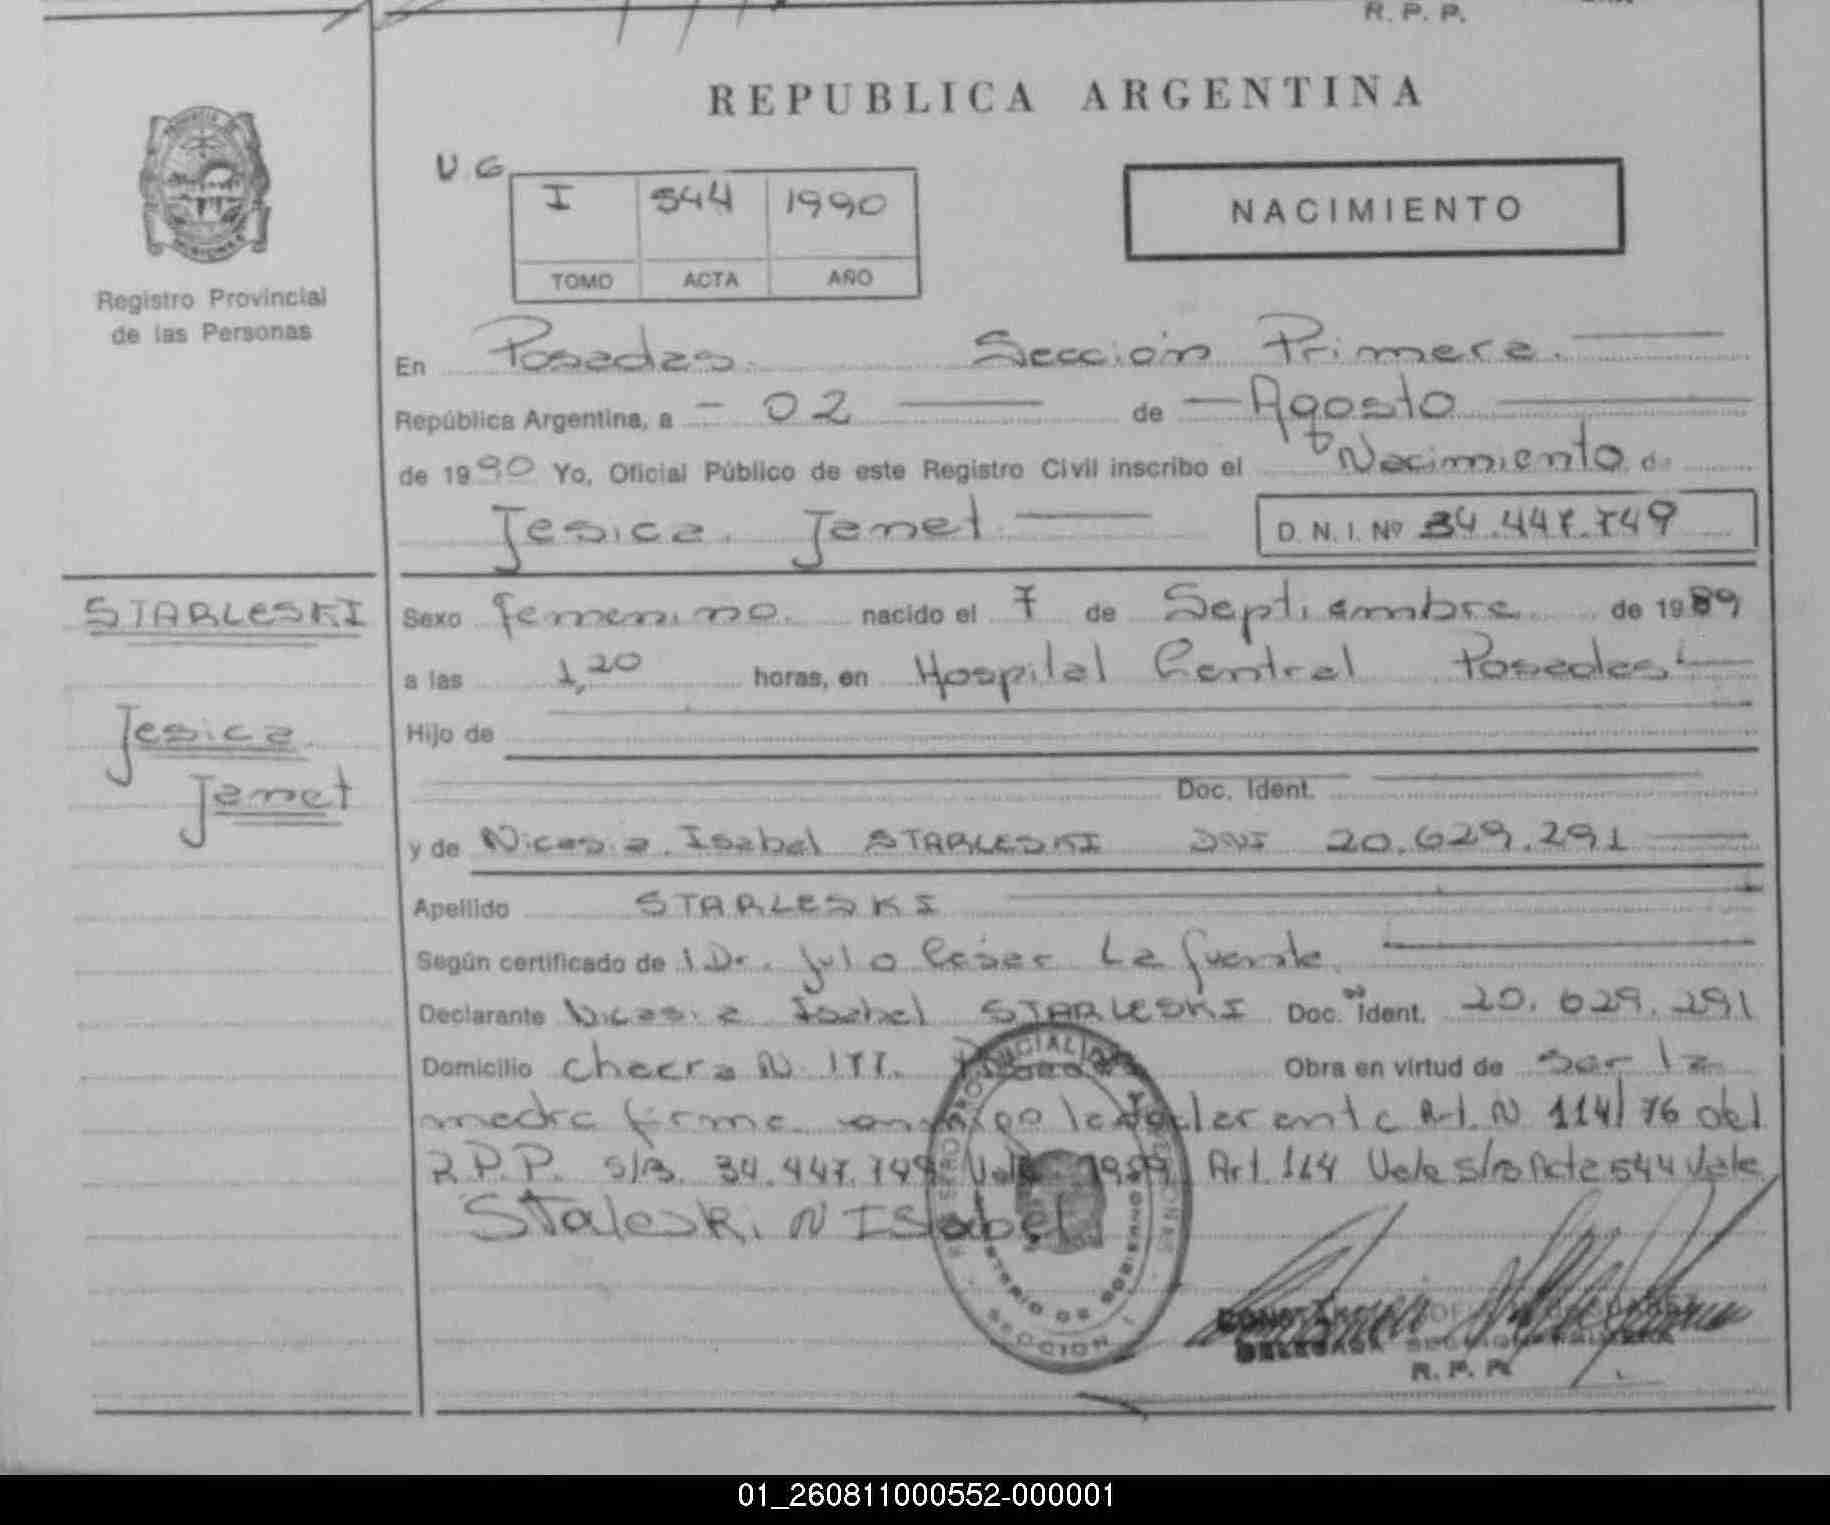 R. P. P.
REPUBLICA ARGENTINA
U G
I 544 1990
TOMO ACTA AÑO
NACIMIENTO
Registro Provincial
de las Personas
En Posadas. Sección Primera.
República Argentina, a - 02 de - Agosto
de 1990 Yo, Oficial Público de este Registro Civil inscribo el Nacimiento de
Jesica Janet D. N. I. Nº 34.447.749
STARLESKI
Jesica
Janet
Sexo femenino. nacido el 7 de Septiembre de 1989
a las 1,20 horas, en Hospital Central Posadas
Hijo de
Doc. Ident.
y de Nicasia Isabel STARLESKI DNI 20.629.291
Apellido STARLESKI
Según certificado de Dr. Julio César La fuente
Declarante Nicasia Isabel STARLESKI Doc. Ident. 20.629.291
Domicilio Chacra N. 177. Obra en virtud de ser la
madre firma conmigo la declarante Art. N 114/76 del
R.P.P. S/B. 34.447.749 Vale 1989 Art. 114 Vale S/B Acta 544 Vale
Staleski N ISabel
SECCION I
MINISTERIO DE GOBIERNO
DELEGADA
R. P. P.
01_260811000552-000001